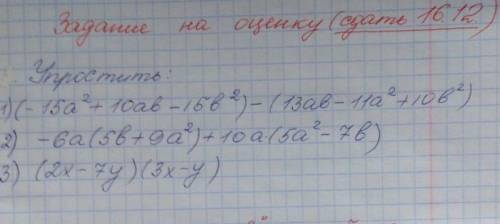 Задание на оценку (сдать 16.12.)
Упростить:
1) (-15a² + 10ab - 15b²) - (13ab - 11a² + 10b²)
2) -6a(5b + 9a²) + 10a(5a² - 7b)
3) (2x - 7y)(3x - y)